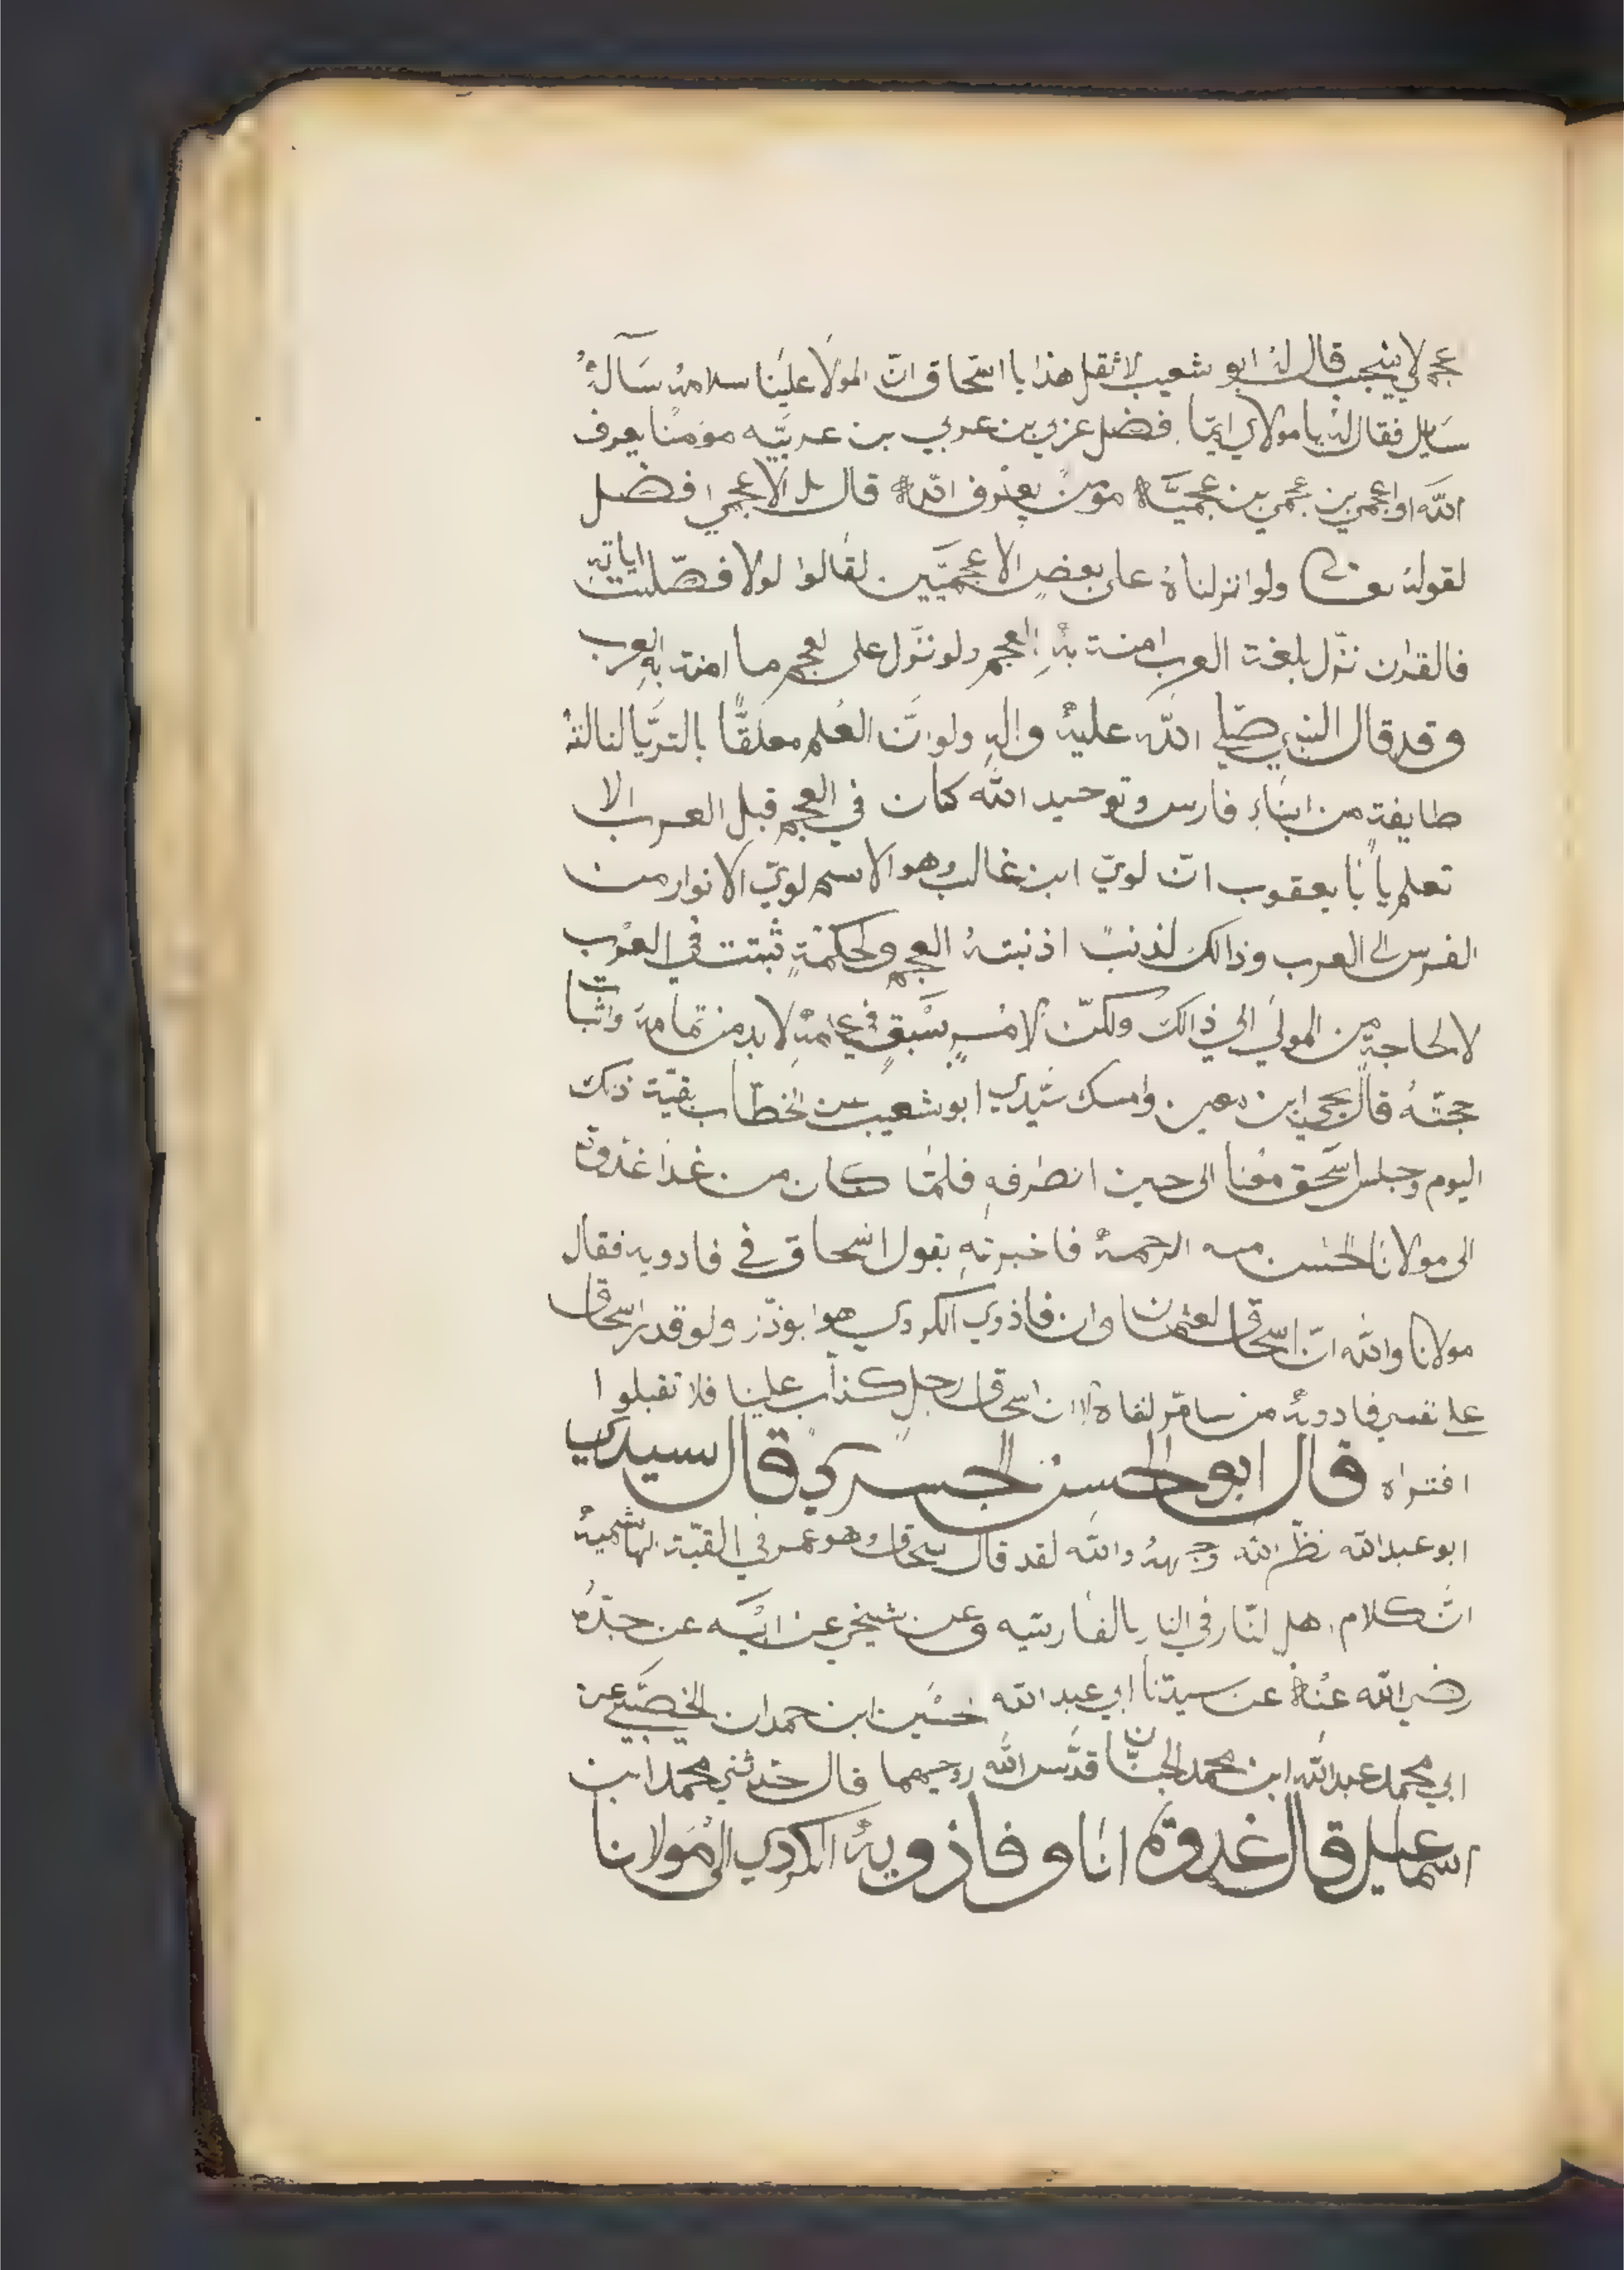 عجمي لا ينجب قال لهُ ابو شعيب لا تقل هذا يا اسحاق انّ المولا علينا سلامهُ سآلهُ
سايل فقال لهُ يا مولاي ايمّا افضل عزي بن عربي بن عربيّه مومنًا يعرف
الله او اعجمي بن عجمي بن عجميَّة مؤمنٌ يعرف الله قال بل الاعجمي افضل
لقولهُ تعالى ولو انزلناهُ على بعض الاعجميّين لقالوا لولا فصّلت اياتهِ
فالقران نزّل بلغة العرب امنة بهُ العجم ولو نزّل على لعجم ما امنة بهِ العرب
وقد قال النبي صلي الله عليهُ والهِ ولو انَّ العُلم معلقًّا بالتريّا لنالتهُ
طايفةٍ من ابناءِ فارس وتوحيد الله كان في العجم قبل العرب الا
تعلم يا با يعقوب انّ لويّ ابن غالب وهو الاسم لويّ الانوار من
الفرس الى العرب وذالك لذنبٌ اذنبتهُ العجم ولحكمْةٍ ثبتت في العرب
لا لحاجةٍ من المولي الي ذالك ولكنّ لامْرٍ سَبقٍ في علمهُ لا بد من تمامهَ واثبات
حجتهُ قال يحيي ابن معين وامسك سيّدي ابو شعيب عن الخطاب بقيّة ذلك
اليوم وجلس اسحق معنا الى حين انصرفهِ فلمّا كان من غدا غدوة
الى مولانا الحسن منه الرحمهُ فاخبرتهِ بقول اسحاق في فادويه فقال
مولانا والله انّ اسحاق لعثمان وان فاذوي الكردي هو ابو ذّر ولو قدر اسحاق
على نفي فادويهُ من سامر لنفاه الا ان اسحاق رجلٍ كذاب علينا فلا تقبلوا
افتراه قال ابو الحسن الجسري قال سيدي
ابو عبد الله نظّر الله وجههُ والله لقد قال سحاق وهو عمر في القبّة الهاشميهُ
انّ كلام اهل النّار في النار بالفارسيّه وعن شيخي عن ابيّه عن جدّهُ
رضي الله عنهُ عن سيدنا ابي عبد الله حسين ابن حمدان الخصّيبي عن
ابي محمد عبد الله ابن محمد الجنّان قدّس الله روحيهما قال حدثني محمد ابن
اسماعيل قال غدوة انا وفاذويهُ الكردي الى مولانا